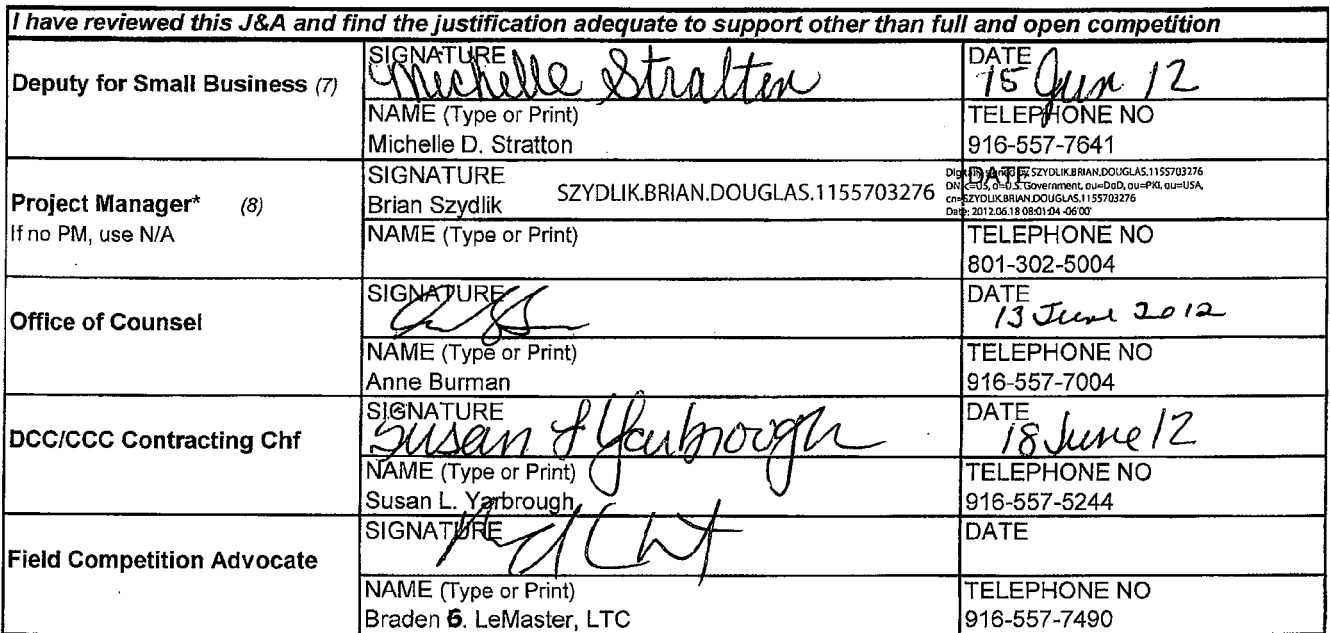 I have reviewed this J&A and find the justification adequate to support other than full and open competition
Deputy for Small Business (7)
SIGNATURE
Michelle Stratten
DATE
15 Jun 12
NAME (Type or Print)
Michelle D. Stratton
TELEPHONE NO
916-557-7641
Project Manager* (8)
If no PM, use N/A
SIGNATURE
Brian Szydlik
SZYDLIK.BRIAN.DOUGLAS.1155703276
DATE
Digitally signed by SZYDLIK.BRIAN.DOUGLAS.1155703276
DN: c=US, o=U.S. Government, ou=DoD, ou=PKI, ou=USA,
cn=SZYDLIK.BRIAN.DOUGLAS.1155703276
Date: 2012.06.18 08:01:04 -06'00'
NAME (Type or Print)
TELEPHONE NO
801-302-5004
Office of Counsel
SIGNATURE
DATE
13 June 2012
NAME (Type or Print)
Anne Burman
TELEPHONE NO
916-557-7004
DCC/CCC Contracting Chf
SIGNATURE
Susan L Yarbrough
DATE
18 June 12
NAME (Type or Print)
Susan L. Yarbrough
TELEPHONE NO
916-557-5244
Field Competition Advocate
SIGNATURE
DATE
NAME (Type or Print)
Braden G. LeMaster, LTC
TELEPHONE NO
916-557-7490